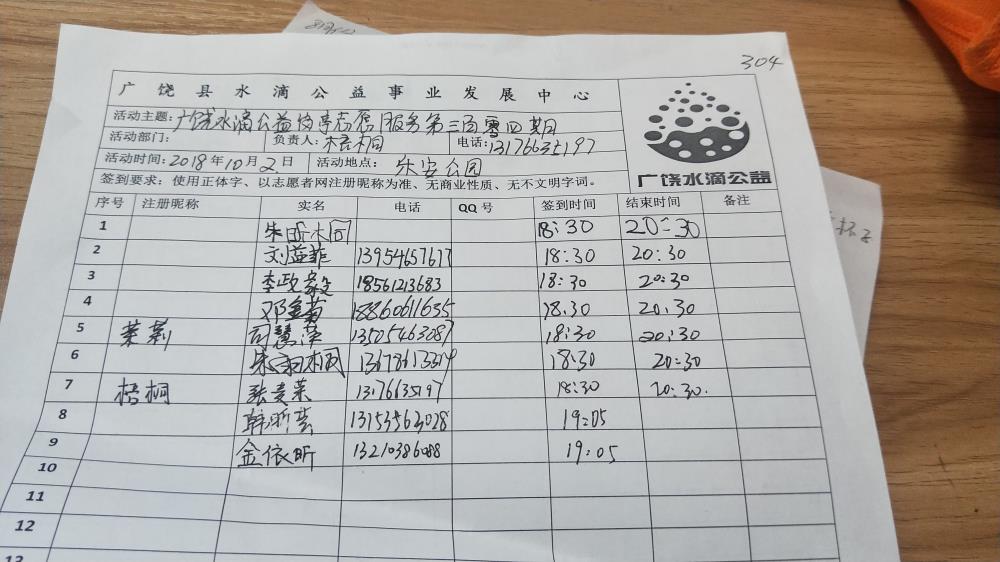 304
广饶县水滴公益事业发展中心
活动主题: 广饶水滴公益传亭志愿服务第三百零四期
活动部门: 负责人: 梧桐 电话: 13176635197
活动时间: 2018年10月2日 活动地点: 乐安公园
签到要求: 使用正体字、以志愿者网注册昵称为准、无商业性质、无不文明字词。
广饶水滴公益
序号 注册昵称 实名 电话 QQ号 签到时间 结束时间 备注
1 朱昕桐 18:30 20:30
2 刘益菲 13954657677 18:30 20:30
3 李政毅 18561213683 18:30 20:30
4 邓金菊 18860611655 18.30 20.30
5 茉莉 司慧萍 13505463087 18:30 20:30
6 13678613314 18:30 20:30
7 梧桐 张贵荣 13176635197 18:30 20:30.
8 韩昕芸 13153563028 19:05
9 金依昕 13210386088 19:05
10
11
12
13